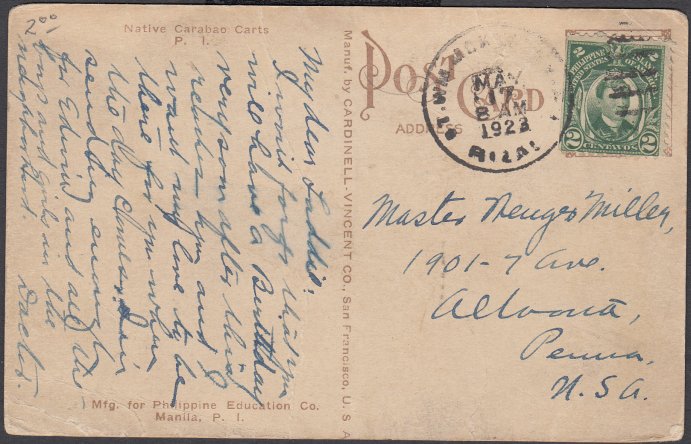 Native Carabao Carts
P. I.
My dear Laddie:
I won't forget that you
will have a Birthday
very soon after this
reaches you and I
want my love to be
there for you when
the day comes. I am
sending enough
for Edwin and all the
boys and girls in the
neighborhood.
Mfg. for Philippine Education Co.
Manila, P. I.
Manuf. by CARDINELL-VINCENT CO., San Francisco, U. S. A
POST CARD
ADDRESS
MAY
17
8 AM
1923
RIZAL
2 PHILIPPINE ISLANDS 2
UNITED STATES OF AMERICA
2 CENTAVOS 2
Master Miller,
1901-7 Ave.
Altoona,
Penna,
U.S.A.